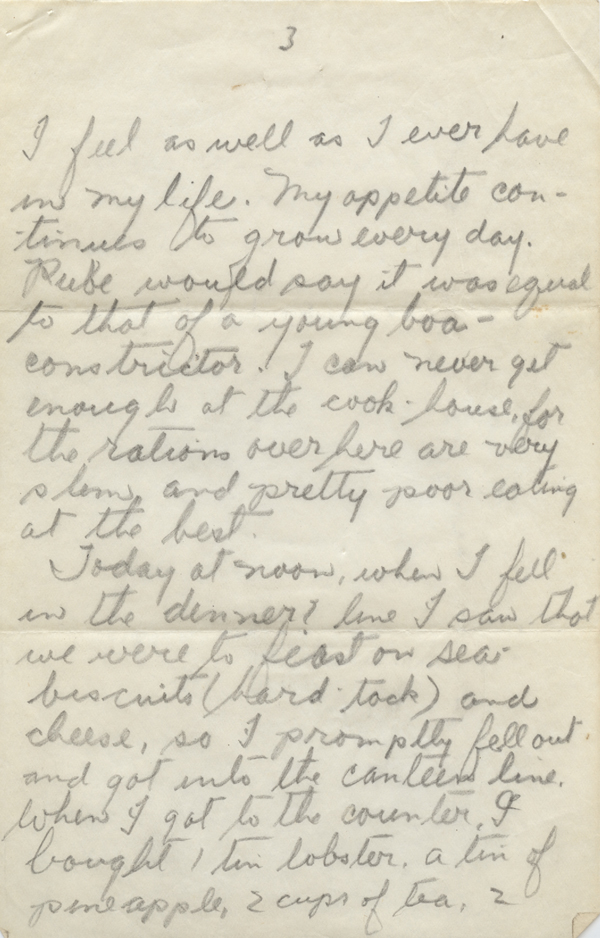 3
I feel as well as I ever have
in my life. My appetite con-
tinues to grow every day.
Rube would say it was equal
to that of a young boa-
constrictor. I can never get
enough at the cook-house, for
the rations over here are very
slem, and pretty poor eating
at the best.
Today at noon, when I fell
in the dinner? line I saw that
we were to feast on sea-
biscuits (hard-tack) and
cheese, so I promptly fell out
and got into the canteen line.
When I got to the counter, I
bought 1 tin lobster, a tin of
pineapple, 2 cups of tea, 2